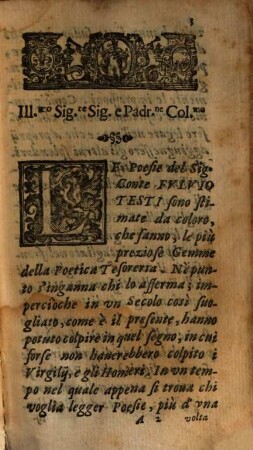 3
Ill.mo Sig.re Sig. e Padr.ne Col.mo
LE Poesie del Sig.
Conte FVLVIO
TESTI sono sti-
mate da coloro,
che sanno, le più
preziose Gemme
della Poetica Tesoreria. Nè pun-
to s'inganna chi lo afferma; im-
percioche in vn Secolo così suo-
gliato, come è il presente, hanno
potuto colpire in quel segno, in cui
forse non hauerebbero colpito i
Virgilij, e gli Homeri. In vn tem-
po nel quale appena si troua chi
voglia legger Poesie, più d'vna
A 2 volta